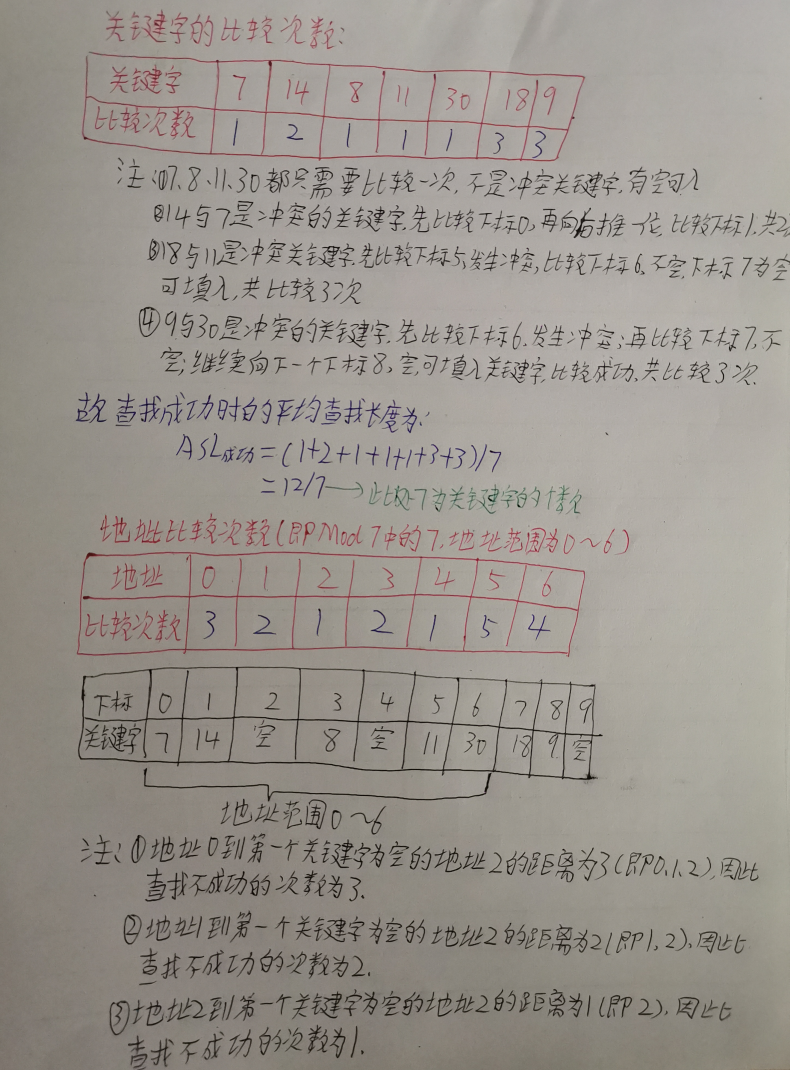 关键字的比较次数：
关键字 7 14 8 11 30 18 9
比较次数 1 2 1 1 1 3 3
注：①7、8、11、30都只需要比较一次，不是冲突关键字，有空可入
②14与7是冲突的关键字，先比较下标0，再向后推一位，比较下标1，共2
③18与11是冲突关键字，先比较下标5，发生冲突，比较下标6，不空，下标7为空
可填入，共比较3次
④9与30是冲突的关键字，先比较下标6，发生冲突；再比较下标7，不
空；继续向下一个下标8，空，可填入关键字，比较成功，共比较3次.
故查找成功时的平均查找长度为：
ASL成功=(1+2+1+1+1+3+3)/7
=12/7→此处7为关键字的个数
地址比较次数(即Mod 7中的7，地址范围为0~6)
地址 0 1 2 3 4 5 6
比较次数 3 2 1 2 1 5 4
下标 0 1 2 3 4 5 6 7 8 9
关键字 7 14 空 8 空 11 30 18 9 空
地址范围0~6
注：①地址0到第一个关键字为空的地址2的距离为3(即0,1,2)，因此
查找不成功的次数为3.
②地址1到第一个关键字为空的地址2的距离为2(即1,2)，因此
查找不成功的次数为2.
③地址2到第一个关键字为空的地址2的距离为1(即2)，因此
查找不成功的次数为1.